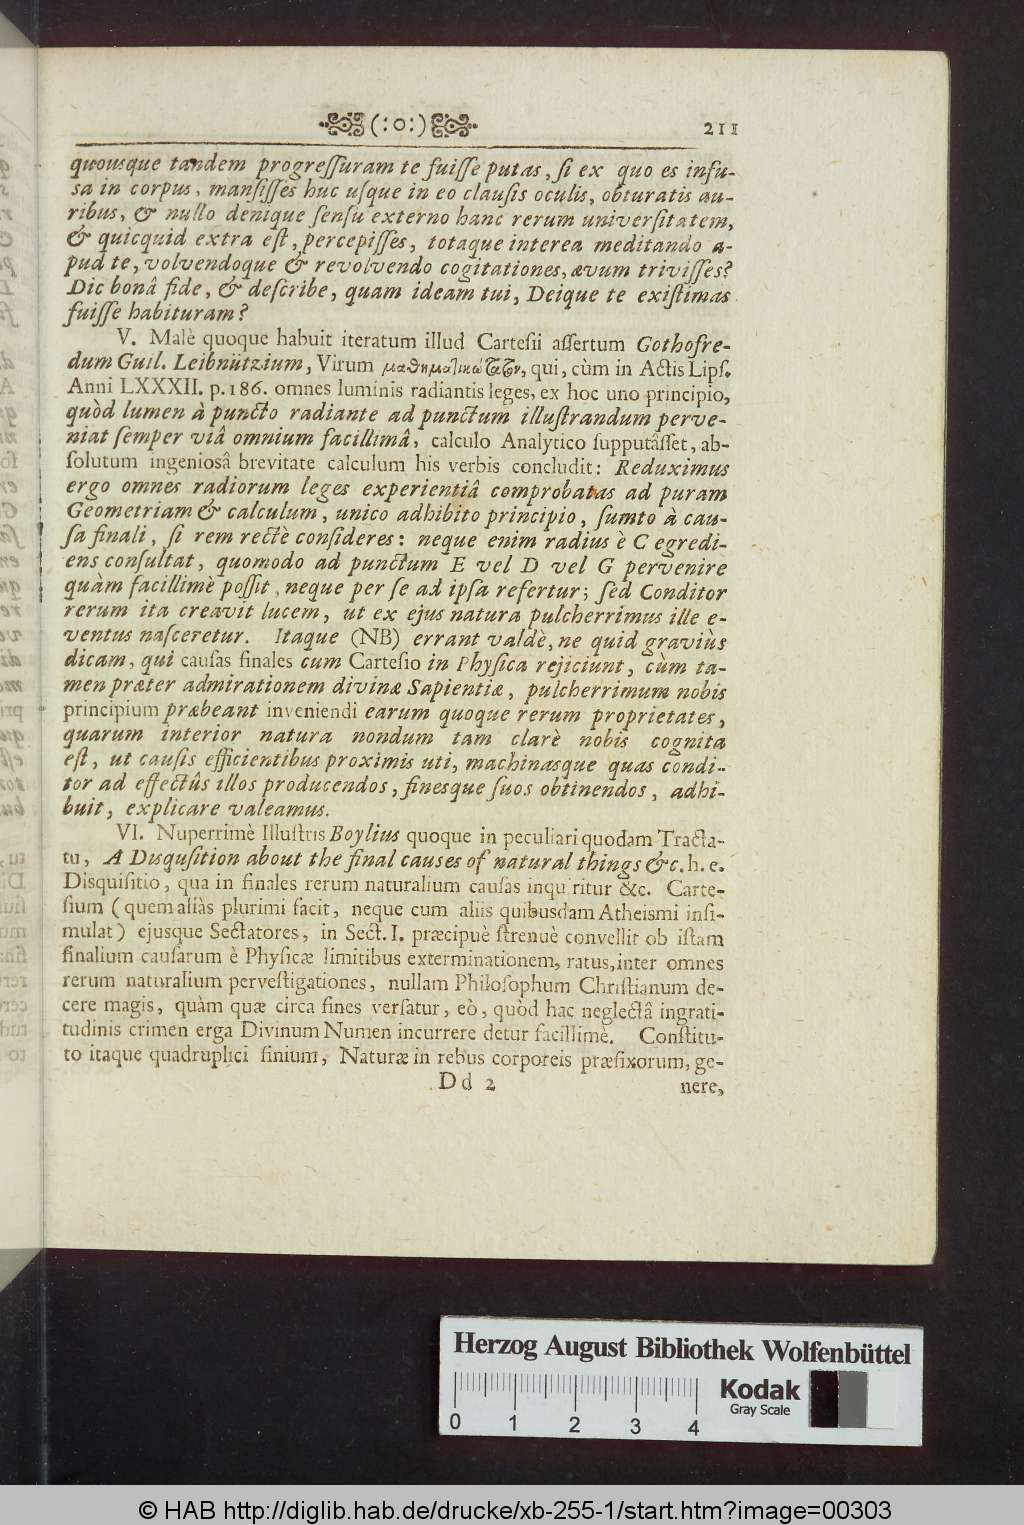 (:o:) 211
quousque tandem progreſſuram te fuiſſe putas, ſi ex quo es infu-
sa in corpus, manſiſſes huc uſque in eo clauſis oculis, obturatis au-
ribus, & nullo denique ſenſu externo hanc rerum univerſitatem,
& quicquid extra eſt, percepiſſes, totaque interea meditando a-
pud te, volvendoque & revolvendo cogitationes, ævum triviſſes?
Dic bonâ fide, & deſcribe, quam ideam tui, Deique te exiſtimas
fuiſſe habituram?
V. Malè quoque habuit iteratum illud Carteſii aſſertum Gothofre-
dum Guil. Leibnützium, Virum μαθημαλικώταζον, qui, cùm in Actis Lipſ.
Anni LXXXII. p. 186. omnes luminis radiantis leges, ex hoc uno principio,
quòd lumen à puncto radiante ad punctum illuſtrandum perve-
niat ſemper viâ omnium facillimâ, calculo Analytico ſupputâſſet, ab-
ſolutum ingenioſâ brevitate calculum his verbis concludit: Reduximus
ergo omnes radiorum leges experientiâ comprobatas ad puram
Geometriam & calculum, unico adhibito principio, ſumto à cau-
ſa finali, ſi rem rectè conſideres: neque enim radius è C egredi-
ens conſultat, quomodo ad punctum E vel D vel G pervenire
quàm facillimè poſſit, neque per ſe ad ipſa refertur; ſed Conditor
rerum ita creavit lucem, ut ex ejus natura pulcherrimus ille e-
ventus naſceretur. Itaque (NB) errant valdè, ne quid graviùs
dicam, qui cauſas finales cum Carteſio in Phyſica rejiciunt, cùm ta-
men præter admirationem divinæ Sapientiæ, pulcherrimum nobis
principium præbeant inveniendi earum quoque rerum proprietates,
quarum interior natura nondum tam clarè nobis cognita
eſt, ut cauſis efficientibus proximis uti, machinasque quas condi-
tor ad effectûs illos producendos, fineſque ſuos obtinendos, adhi-
buit, explicare valeamus.
VI. Nuperrimè Illuſtris Boylius quoque in peculiari quodam Tracta-
tu, A Disquſition about the final cauſes of natural things &c. h. e.
Disquiſitio, qua in finales rerum naturalium cauſas inquiritur &c. Carte-
ſium (quem aliàs plurimi facit, neque cum aliis quibusdam Atheismi inſi-
mulat) ejusque Sectatores, in Sect. I. præcipuè ſtrenuè convellit ob iſtam
finalium cauſarum è Phyſicæ limitibus exterminationem, ratus, inter omnes
rerum naturalium perveſtigationes, nullam Philoſophum Chriſtianum de-
cere magis, quàm quæ circa fines verſatur, eò, quòd hac neglectâ ingrati-
tudinis crimen erga Divinum Numen incurrere detur facillimè. Conſtitu-
to itaque quadruplici finium, Naturæ in rebus corporeis præfixorum, ge-
Dd 2 nere,
Herzog August Bibliothek Wolfenbüttel
0 1 2 3 4
Kodak
Gray Scale
© HAB http://diglib.hab.de/drucke/xb-255-1/start.htm?image=00303